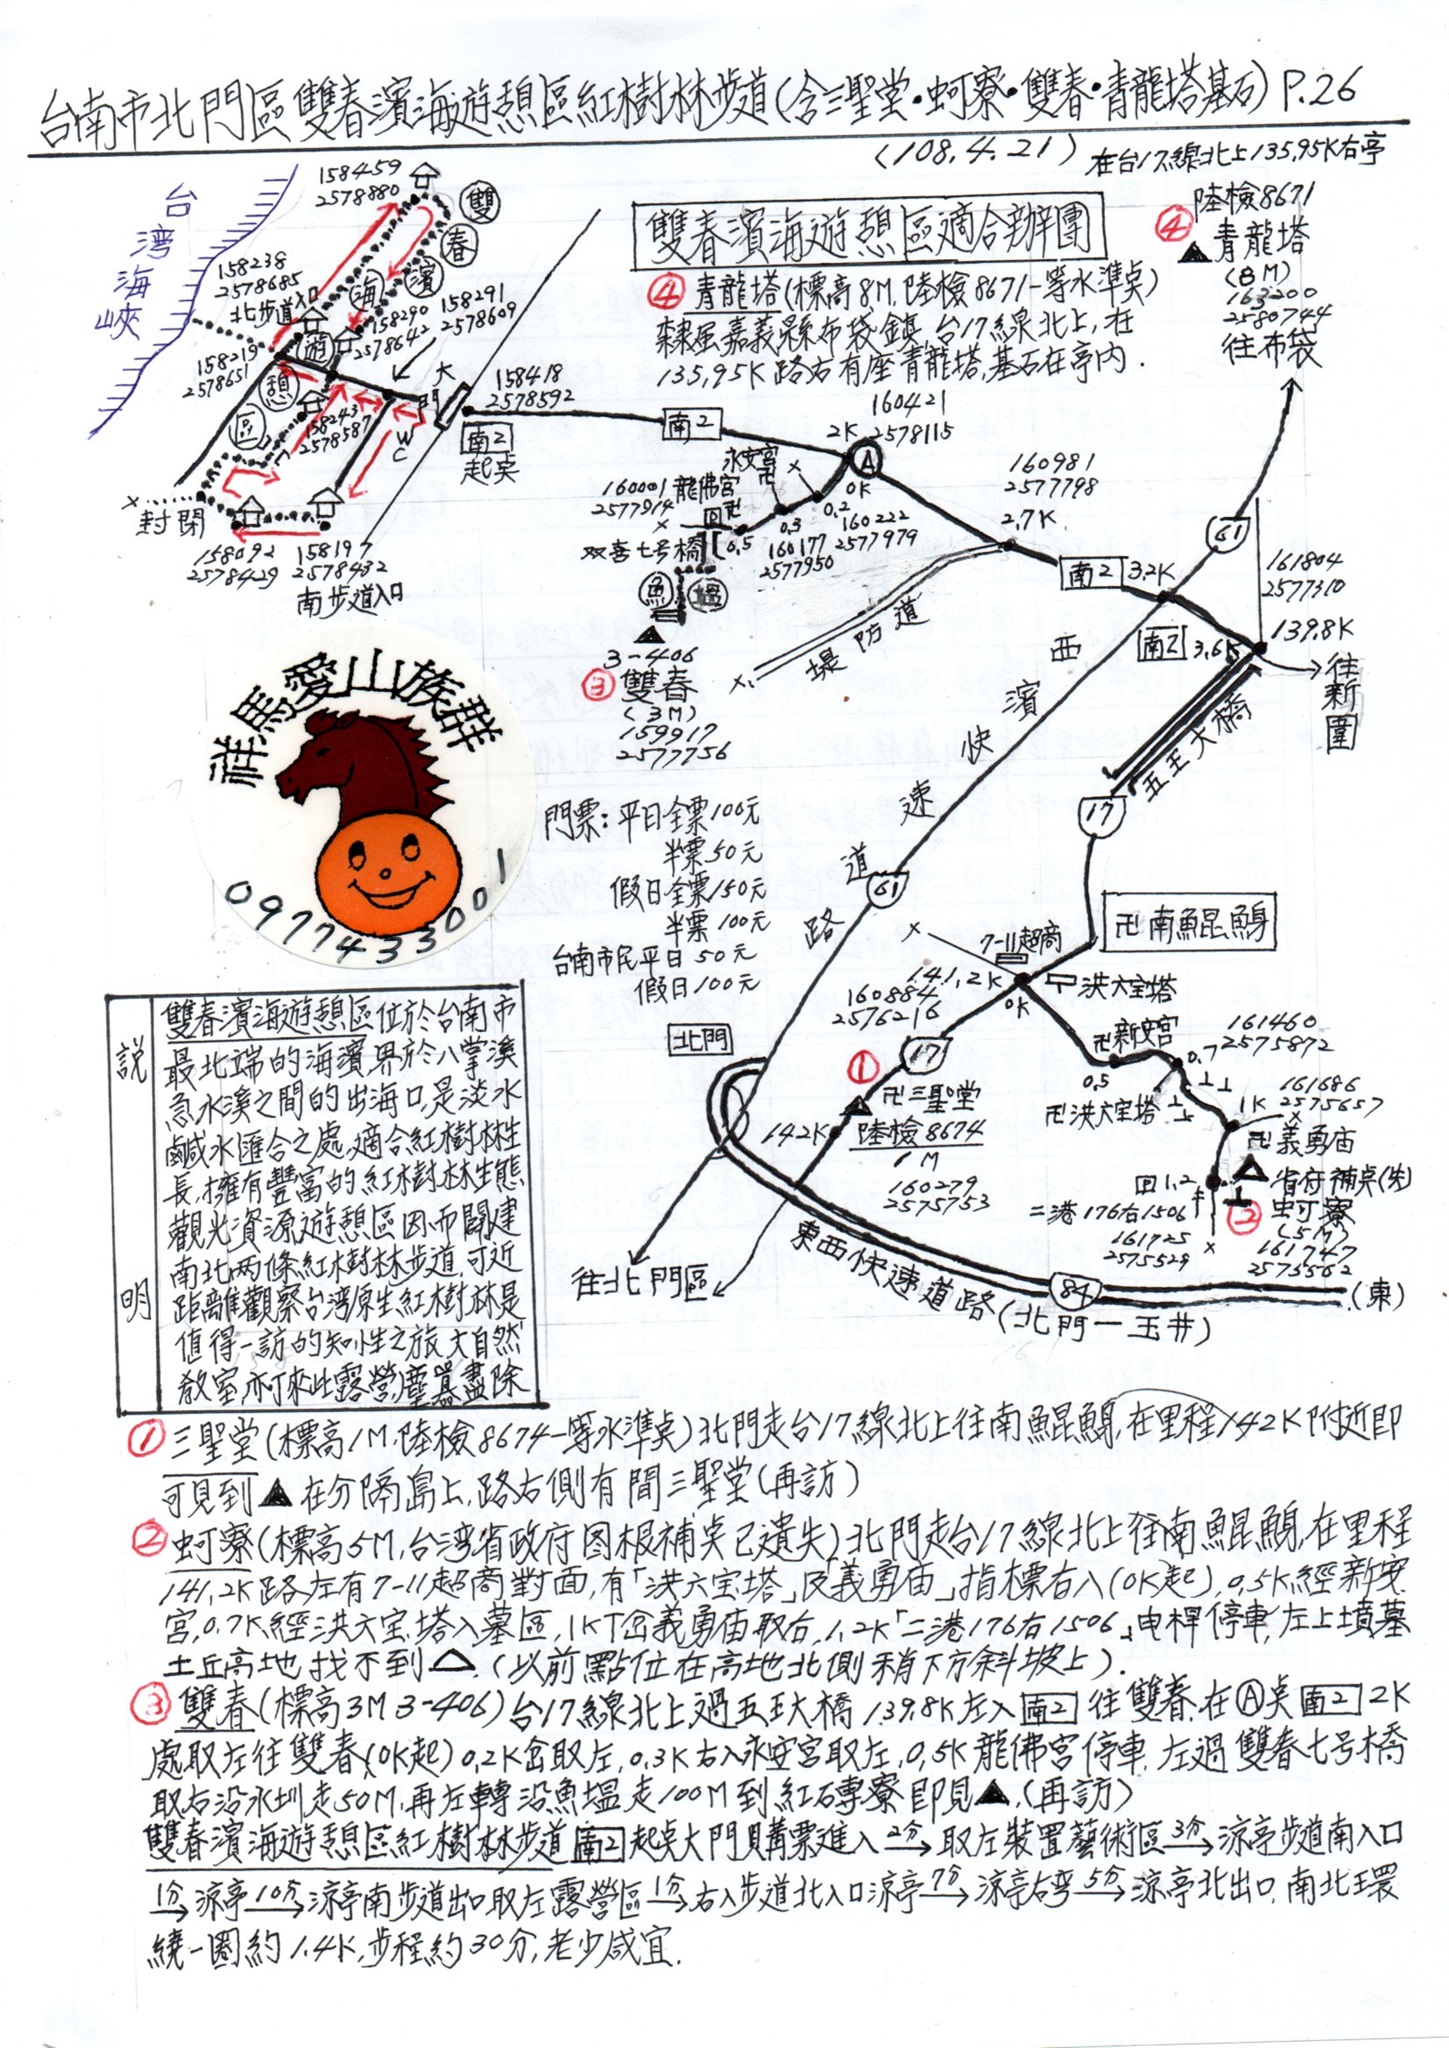 台南市北門區雙春濱海遊憩區紅樹林步道(含三聖堂·蚵寮·雙春·青龍塔基石) P.26
(108.4.21)
在台17線北上135.95K右亭
陸檢8671
④ 青龍塔
(8M)
2580744
往布袋
雙春濱海遊憩區適合辦團
④ 青龍塔(標高8M.陸檢8671一等水準奌)
隸屬嘉義縣布袋鎮,台17線北上,在
135.95K路右有座青龍塔,基石在亭內.
台湾海峽
158459
2578880
雙春濱海遊憩區
158238
2578685
北步道入口
158291
2578609
158290
2578642
158219
2578651
158243
2578587
大門
WC
158418
2578592
南2
起奌
×封閉
158092
2578429
158197
2578432
南步道入口
南2
160421
2K 2578115
A
0K
永安宮
160001 龍佛宮
2577914
双春七号橋
0.5
0.3
0.2
160222
2577979
160177
2577950
160981
2577798
2.7K
魚塭
3-406
③ 雙春
(3M)
159917
2577756
堤防道
南2 3.2K
61
161804
2577310
南2 3.6K
139.8K
往新圍
五王大橋
17
西濱快速道路
61
祥馬愛山族群
0977433001
門票:平日全票100元
半票50元
假日全票150元
半票100元
台南市民平日50元
假日100元
卍南鯤鯓
7-11超商
141.2K
0K
洪六宝塔
160884
2576216
北門
17
① 卍三聖堂
142K
陸檢8674
1M
160279
2575753
卍新安宮
0.5
0.7
161460
2575872
卍洪六宝塔
161686
2575657
1K
卍義勇庙
1.2
省府補奌(失)
二港176右1506
161725
2575529
② 蚵寮
(5M)
161747
2575562
往北門區
東西快速道路(北門一玉井)
84
(東)
說明
雙春濱海遊憩區位於台南市
最北端的海濱界於八掌溪
急水溪之間的出海口,是淡水
鹹水匯合之處,適合紅樹林生
長,擁有豐富的紅樹林生態
觀光資源,遊憩區因而闢建
南北两條紅樹林步道,可近
距離觀察台湾原生紅樹林是
值得一訪的知性之旅,大自然
教室,亦可來此露營,塵囂盡除
① 三聖堂(標高1M.陸檢8674一等水準奌)北門走台17線北上往南鯤鯓,在里程142K附近即
可見到▲在分隔島上,路右側有間三聖堂(再訪)
② 蚵寮(標高5M,台湾省政府图根補奌已遺失)北門走台17線北上往南鯤鯓,在里程
141.2K路左有7-11超商對面,有「洪六宝塔」及「義勇庙」指標右入(0K起),0.5K經新安
宮,0.7K經洪六宝塔入墓區,1K丁岔義勇庙取右,1.2K「二港176右1506」电桿停車,左上墳墓
土丘高地找不到△(以前點位在高地北側稍下方斜坡上).
③ 雙春(標高3M 3-406)台17線北上過五王大橋139.8K左入南2往雙春,在Ⓐ奌南2 2K
處取左往雙春(0K起)0.2K岔取左,0.3K右入永安宮取左,0.5K龍佛宮停車,左過雙春七号橋
取右沿水圳走50M,再左轉沿魚塭走100M到紅磚寮即見▲.(再訪)
雙春濱海遊憩區紅樹林步道南2起奌大門買購票進入2分→取左裝置藝術區3分→涼亭步道南入口
1分→涼亭10分→涼亭南步道出口取左露營區1分→右入步道北入口涼亭7分→涼亭右彎5分→涼亭北出口,南北環
繞一圈約1.4K,步程約30分,老少咸宜.